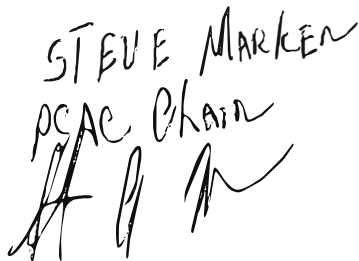 STEVE MARKEN
PCAC Chair